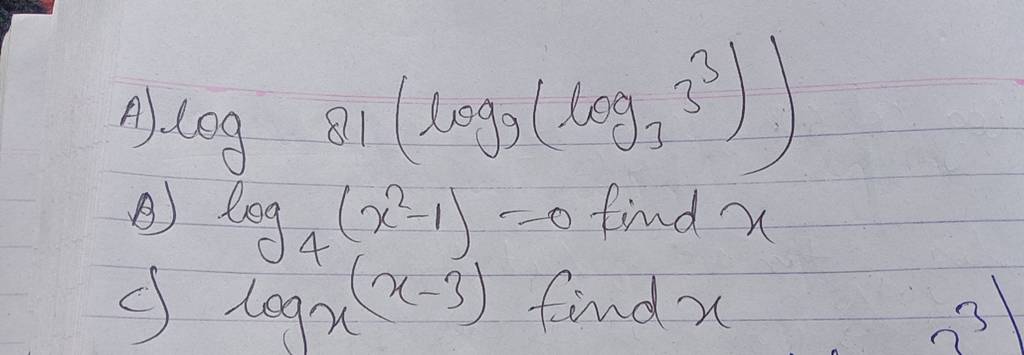 A) log 81 (log₉(log₃ 3³))
B) log₄ (x²-1) = 0 find x
C) logx (x-3) find x
3³)